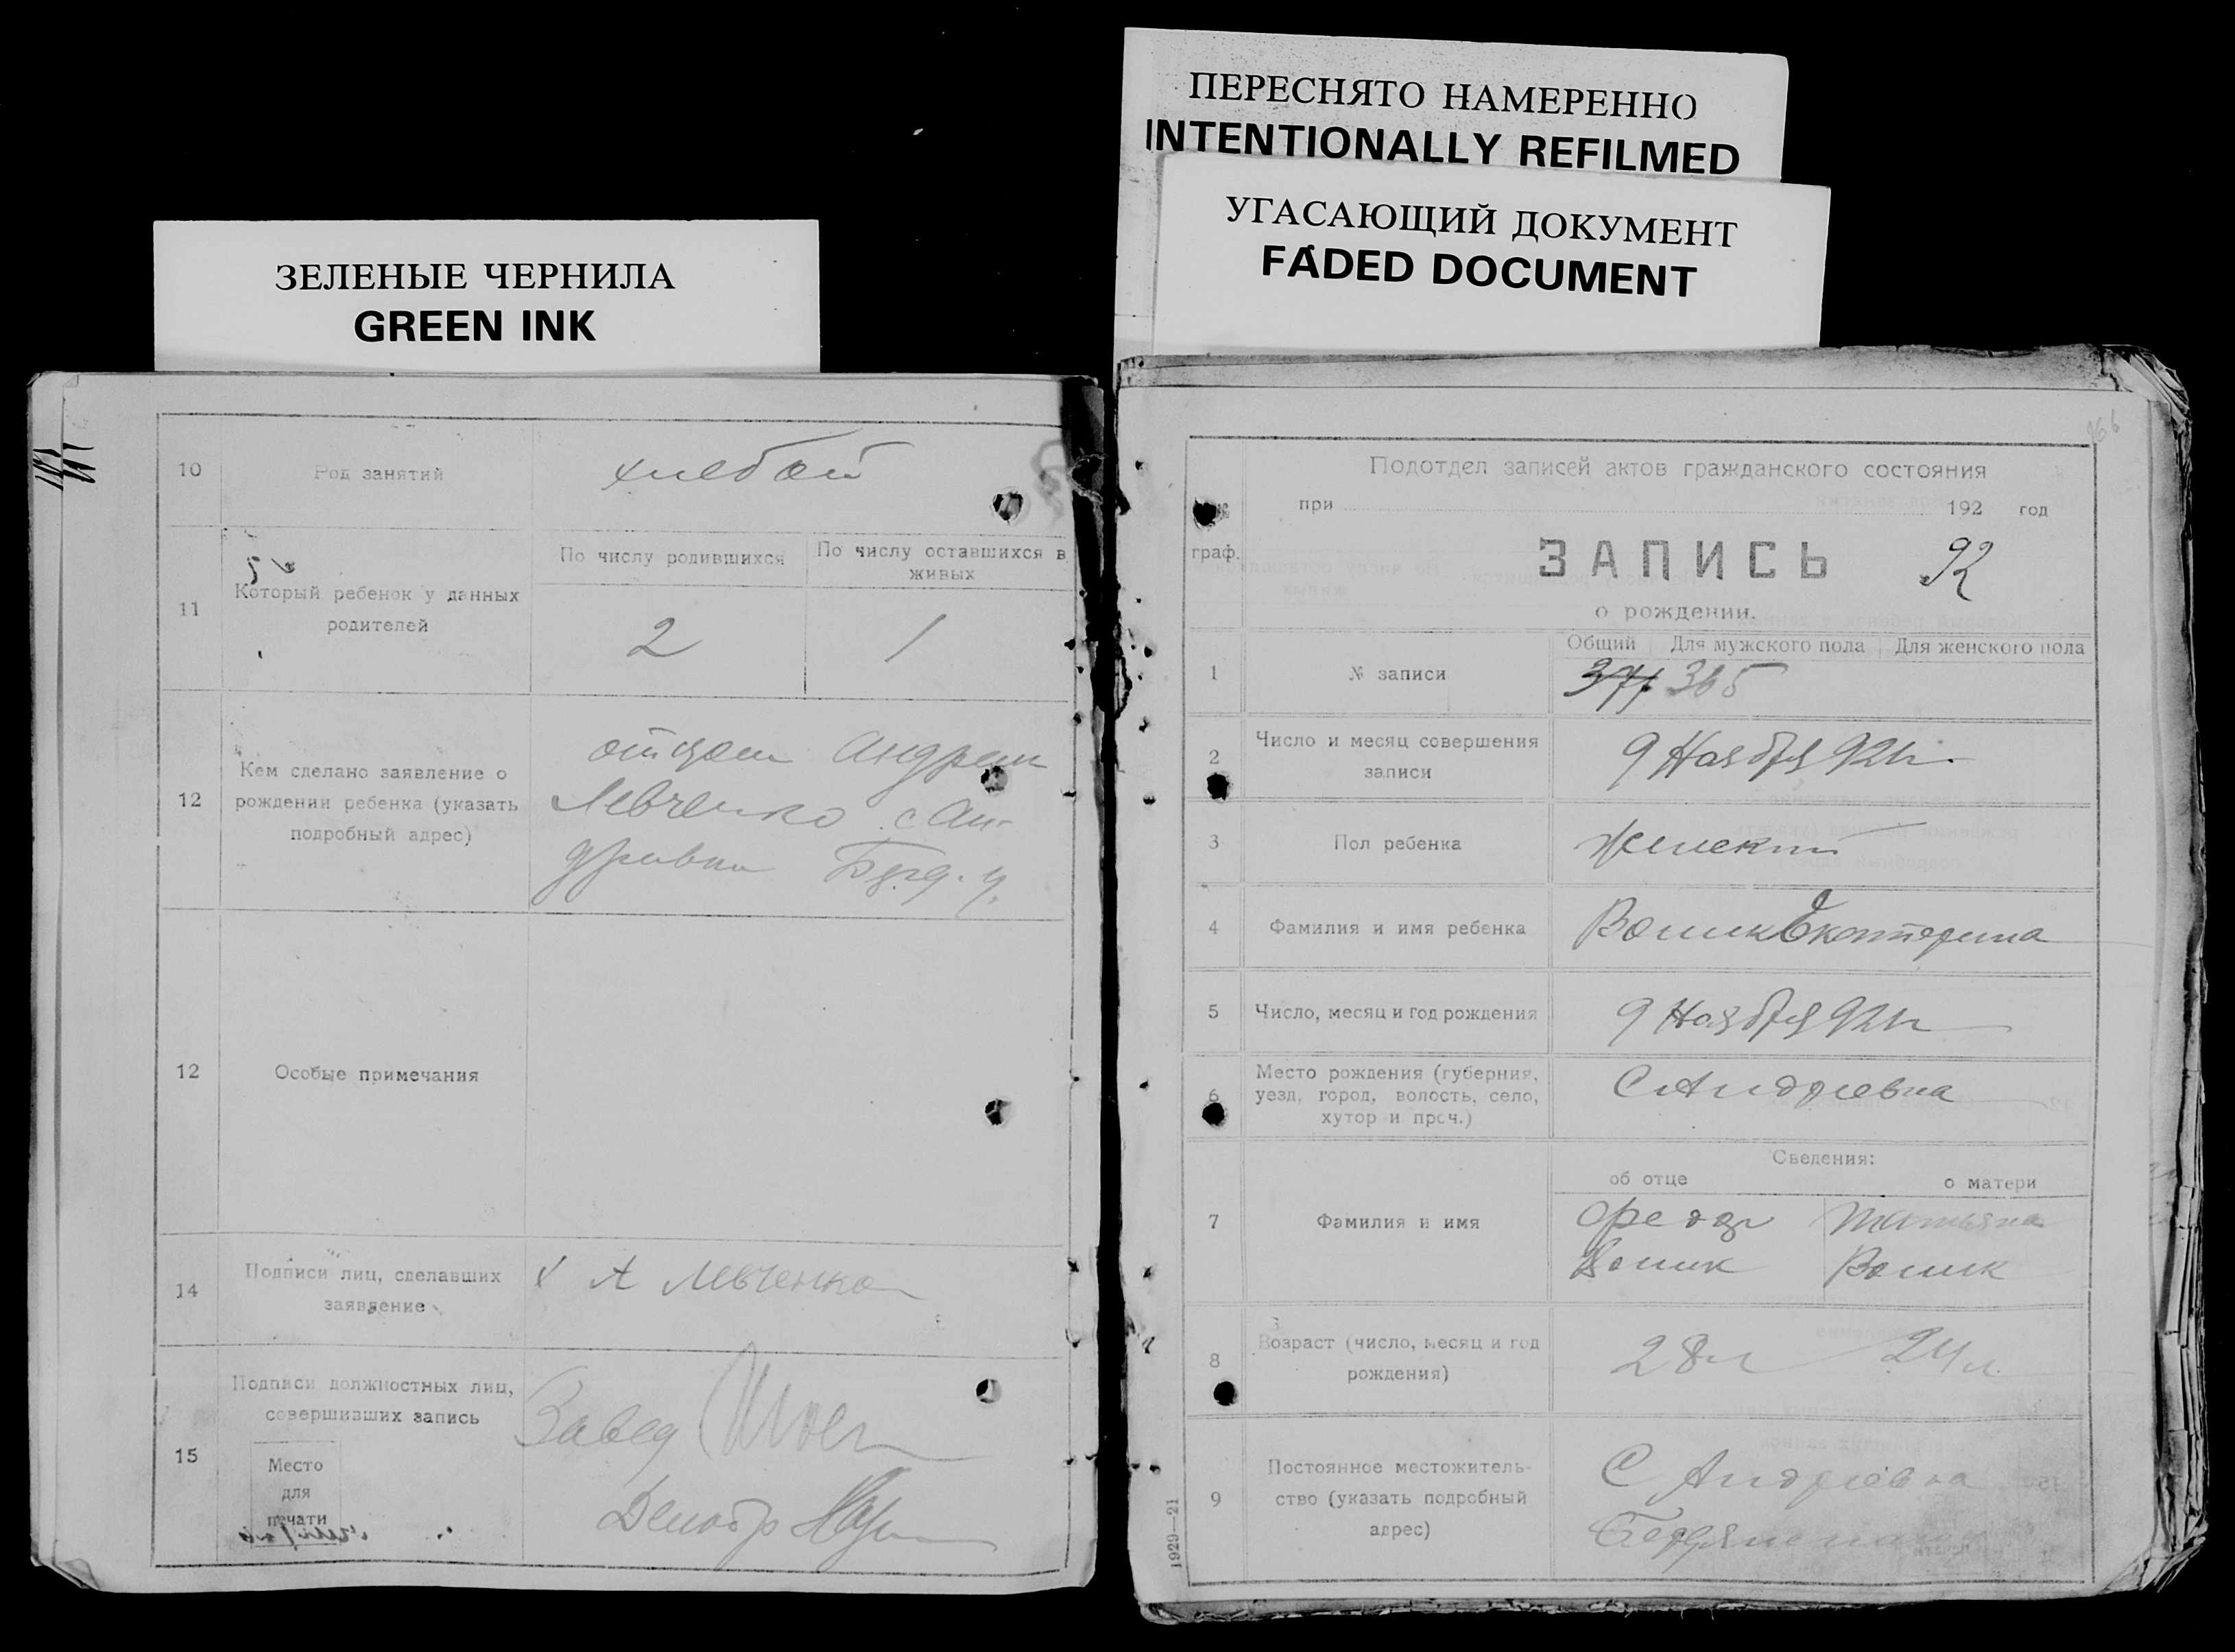 ПЕРЕСНЯТО НАМЕРЕННО
INTENTIONALLY REFILMED
УГАСАЮЩИЙ ДОКУМЕНТ
FADED DOCUMENT
ЗЕЛЕНЫЕ ЧЕРНИЛА
GREEN INK
10
Род занятий
хлебоп
11
Который ребенок у данных
родителей
По числу родившихся
По числу оставшихся в
живых
2
1
12
Кем сделано заявление о
рождении ребенка (указать
подробный адрес)
отцом Андреем
Левченко с Ан-
дровка у.
12
Особые примечания
14
Подписи лиц, сделавших
заявление
А Левченко
15
Подписи должностных лиц,
совершивших запись
Место
для
печати
Завед
Делопр
166
Подотдел записей актов гражданского состояния
при 192 год
граф.
ЗАПИСЬ
92
о рождении.
1
№ записи
Общий
Для мужского пола
Для женского пола
371 365
2
Число и месяц совершения
записи
9 Ноября 92
3
Пол ребенка
Женский
4
Фамилия и имя ребенка
Воник Екатерина
5
Число, месяц и год рождения
9 Ноября 92
6
Место рождения (губерния,
уезд, город, волость, село,
хутор и проч.)
С Андреевка
7
Фамилия и имя
Сведения:
об отце
о матери
Федор
Воник
Татьяна
Воник
8
Возраст (число, месяц и год
рождения)
28 л
24 л.
9
Постоянное местожитель-
ство (указать подробный
адрес)
С Андреевка
1929—21